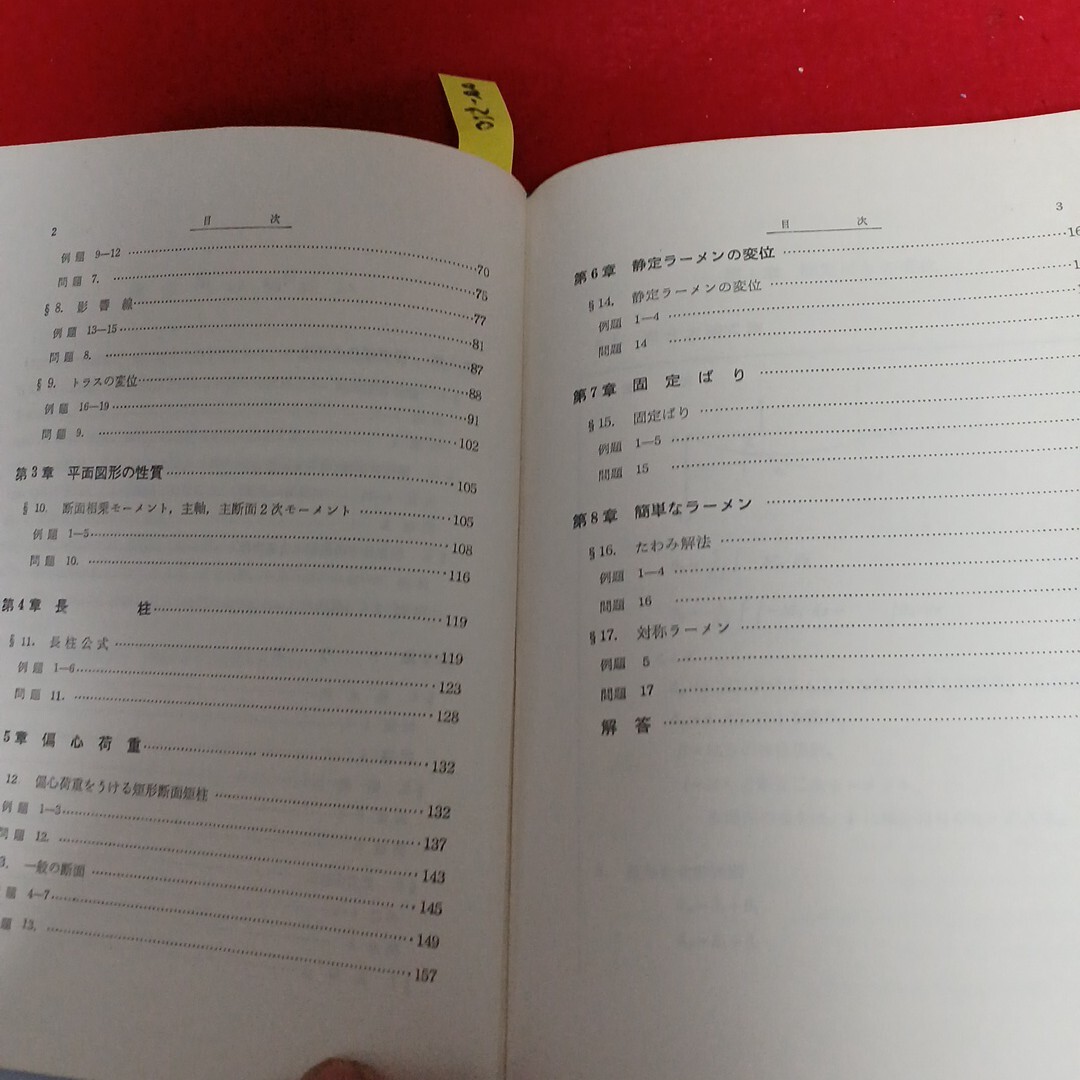 2
目 次
例題 9—12 ……70
問題 7. ……75
§8. 影響線……77
例題 13—15……81
問題 8. ……87
§9. トラスの変位……88
例題 16—19……91
問題 9. ……102
第3章 平面図形の性質……105
§10. 断面相乗モーメント，主軸，主断面2次モーメント ……105
例題 1—5……108
問題 10. ……116
第4章 長 柱……119
§11. 長柱公式……119
例題 1—6……123
問題 11. ……128
5章 偏心荷重……132
12 偏心荷重をうける矩形断面短柱 ……132
例題 1—3……137
問題 12. ……143
3. 一般の断面 ……145
題 4—7……149
題 13. ……157
目 次
3
第6章 静定ラーメンの変位 ……16
§14. 静定ラーメンの変位 ……1
例題 1—4 ……
問題 14 ……
第7章 固定ばり ……
§15. 固定ばり ……
例題 1—5 ……
問題 15 ……
第8章 簡単なラーメン ……
§16. たわみ解法 ……
例題 1—4 ……
問題 16 ……
§17. 対称ラーメン ……
例題 5 ……
問題 17 ……
解答 ……